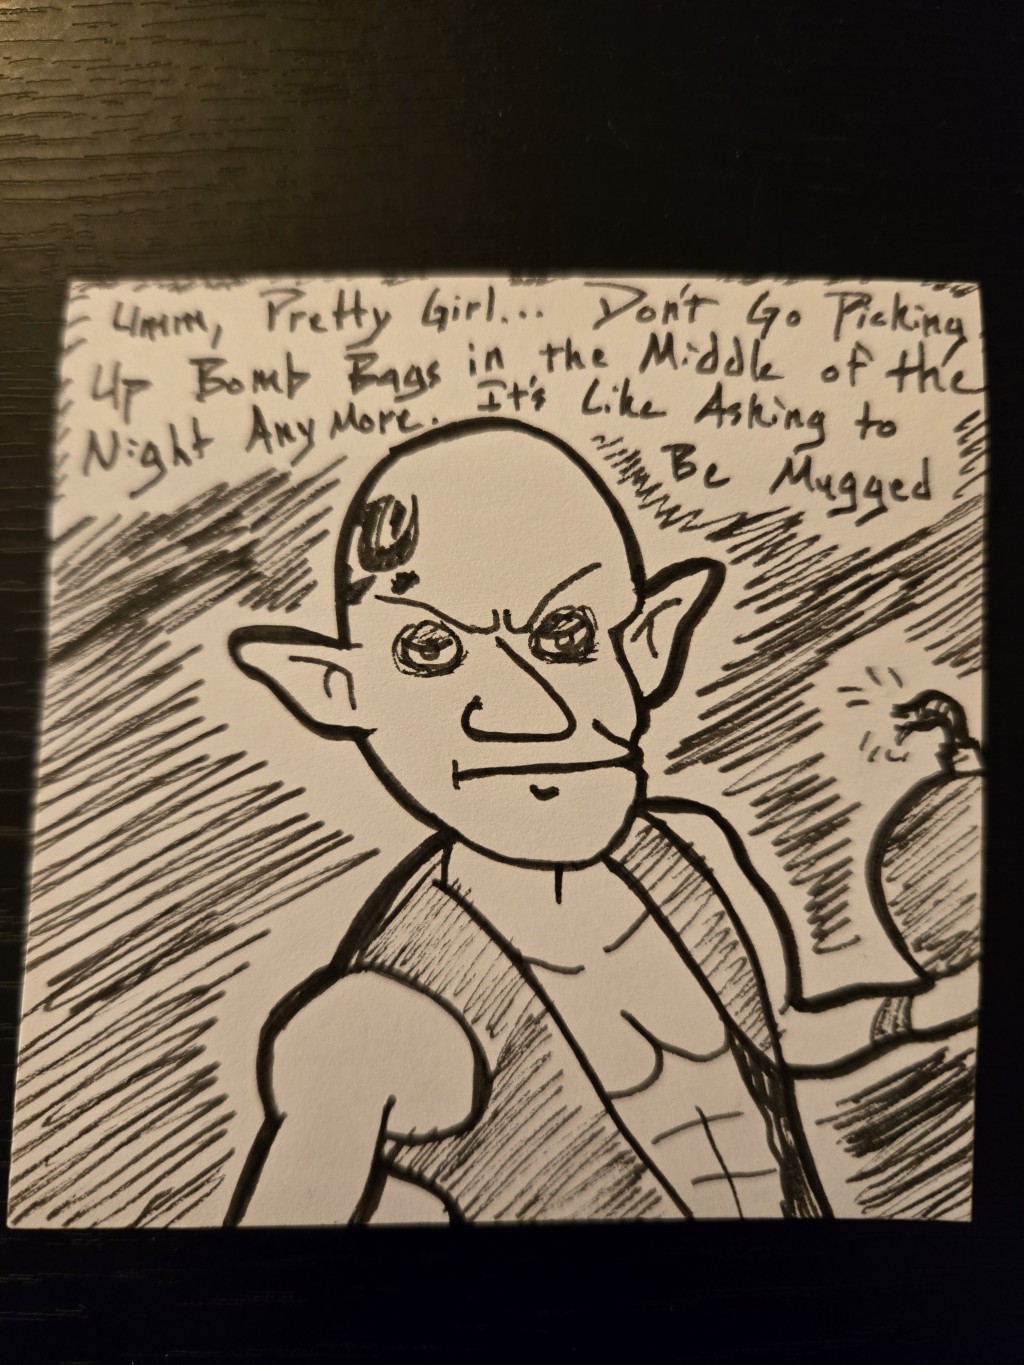 Umm, Pretty Girl... Don't Go Picking
Up Bomb Bags in the Middle of the
Night Any More. It's Like Asking to
Be Mugged